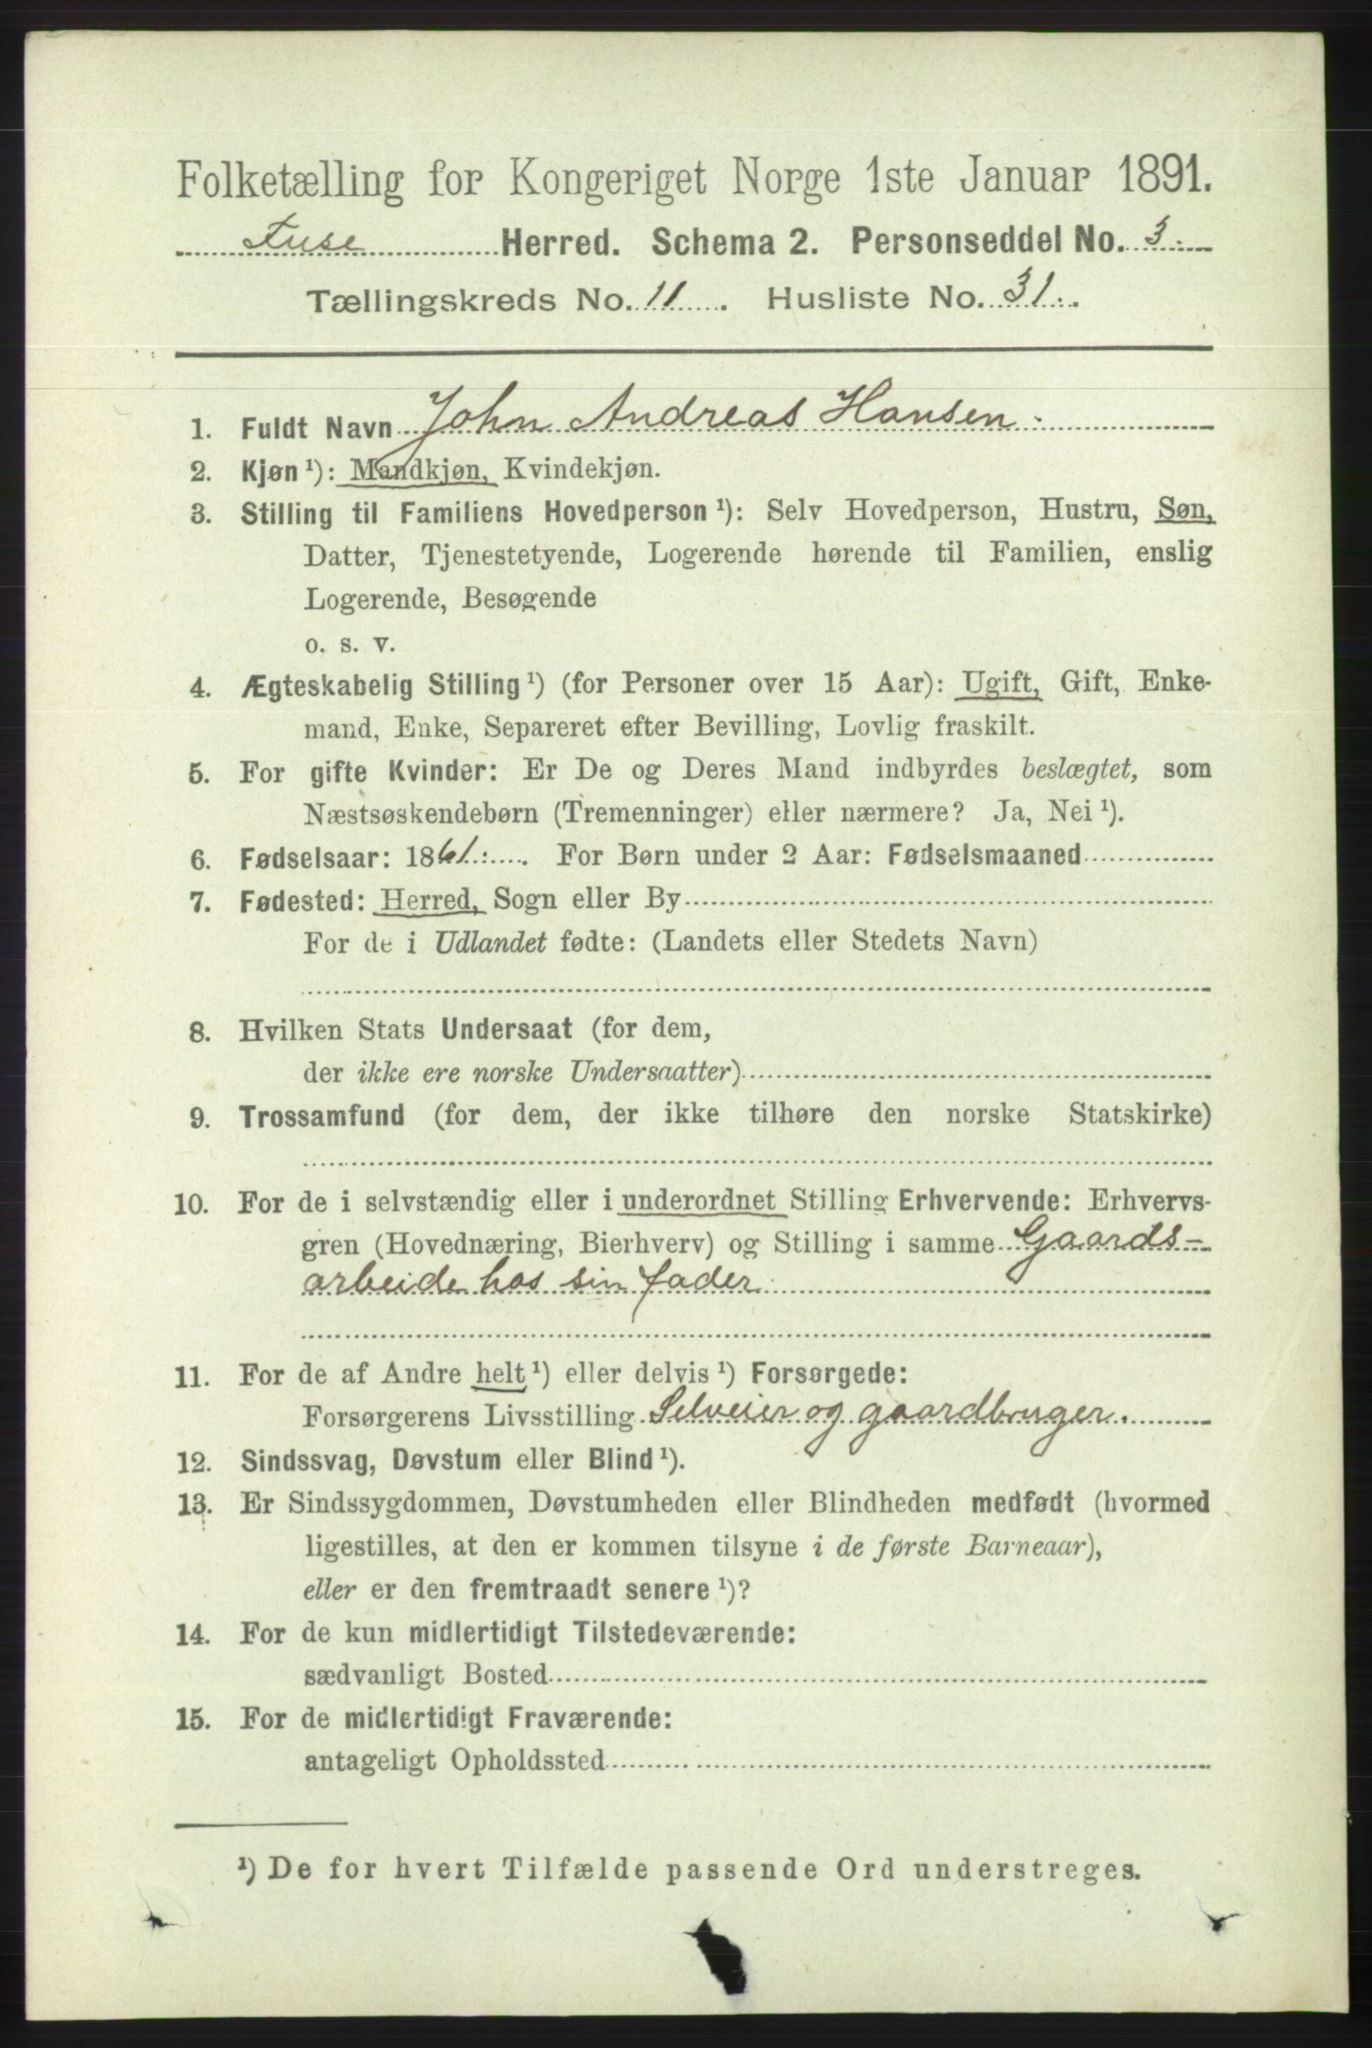 Folketælling for Kongeriget Norge 1ste Januar 1891.
Fuse Herred. Schema 2. Personseddel No. 3.
Tællingskreds No. 11. Husliste No. 31.
1. Fuldt Navn John Andreas Hansen.
2. Kjøn ¹): Mandkjøn, Kvindekjøn.
3. Stilling til Familiens Hovedperson ¹): Selv Hovedperson, Hustru, Søn,
Datter, Tjenestetyende, Logerende hørende til Familien, enslig
Logerende, Besøgende
o. s. v.
4. Ægteskabelig Stilling ¹) (for Personer over 15 Aar): Ugift, Gift, Enke-
mand, Enke, Separeret efter Bevilling, Lovlig fraskilt.
5. For gifte Kvinder: Er De og Deres Mand indbyrdes beslægtet, som
Næstsøskendebørn (Tremenninger) eller nærmere? Ja, Nei ¹).
6. Fødselsaar: 1861. For Børn under 2 Aar: Fødselsmaaned
7. Fødested: Herred, Sogn eller By
For de i Udlandet fødte: (Landets eller Stedets Navn)
8. Hvilken Stats Undersaat (for dem,
der ikke ere norske Undersaatter)
9. Trossamfund (for dem, der ikke tilhøre den norske Statskirke)
10. For de i selvstændig eller i underordnet Stilling Erhvervende: Erhvervs-
gren (Hovednæring, Bierhverv) og Stilling i samme Gaards-
arbeide hos sin fader.
11. For de af Andre helt ¹) eller delvis ¹) Forsørgede:
Forsørgerens Livsstilling Selveier og gaardbruger.
12. Sindssvag, Døvstum eller Blind ¹).
13. Er Sindssygdommen, Døvstumheden eller Blindheden medfødt (hvormed
ligestilles, at den er kommen tilsyne i de første Barneaar),
eller er den fremtraadt senere ¹)?
14. For de kun midlertidigt Tilstedeværende:
sædvanligt Bosted
15. For de midlertidigt Fraværende:
antageligt Opholdssted
¹) De for hvert Tilfælde passende Ord understreges.